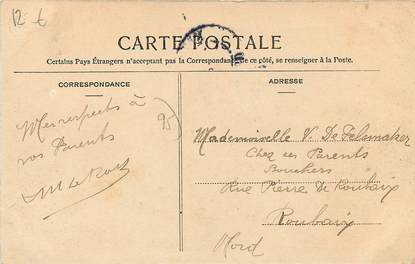 12 €
CARTE POSTALE
Certains Pays Étrangers n'acceptant pas la Correspondance de ce côté, se renseigner à la Poste.
CORRESPONDANCE
ADRESSE
Mes respects à
vos Parents
95
Mademoiselle V. De
Chez ses Parents
Bouchers
Rue Pierre de Roubaix
Roubaix
Nord